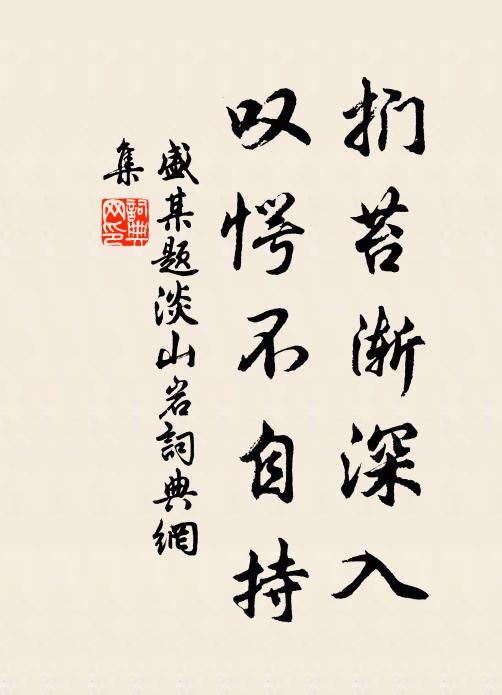 扪苔渐深入
叹愕不自持
盛某题淡山岩詞典網
集
詞典
网印